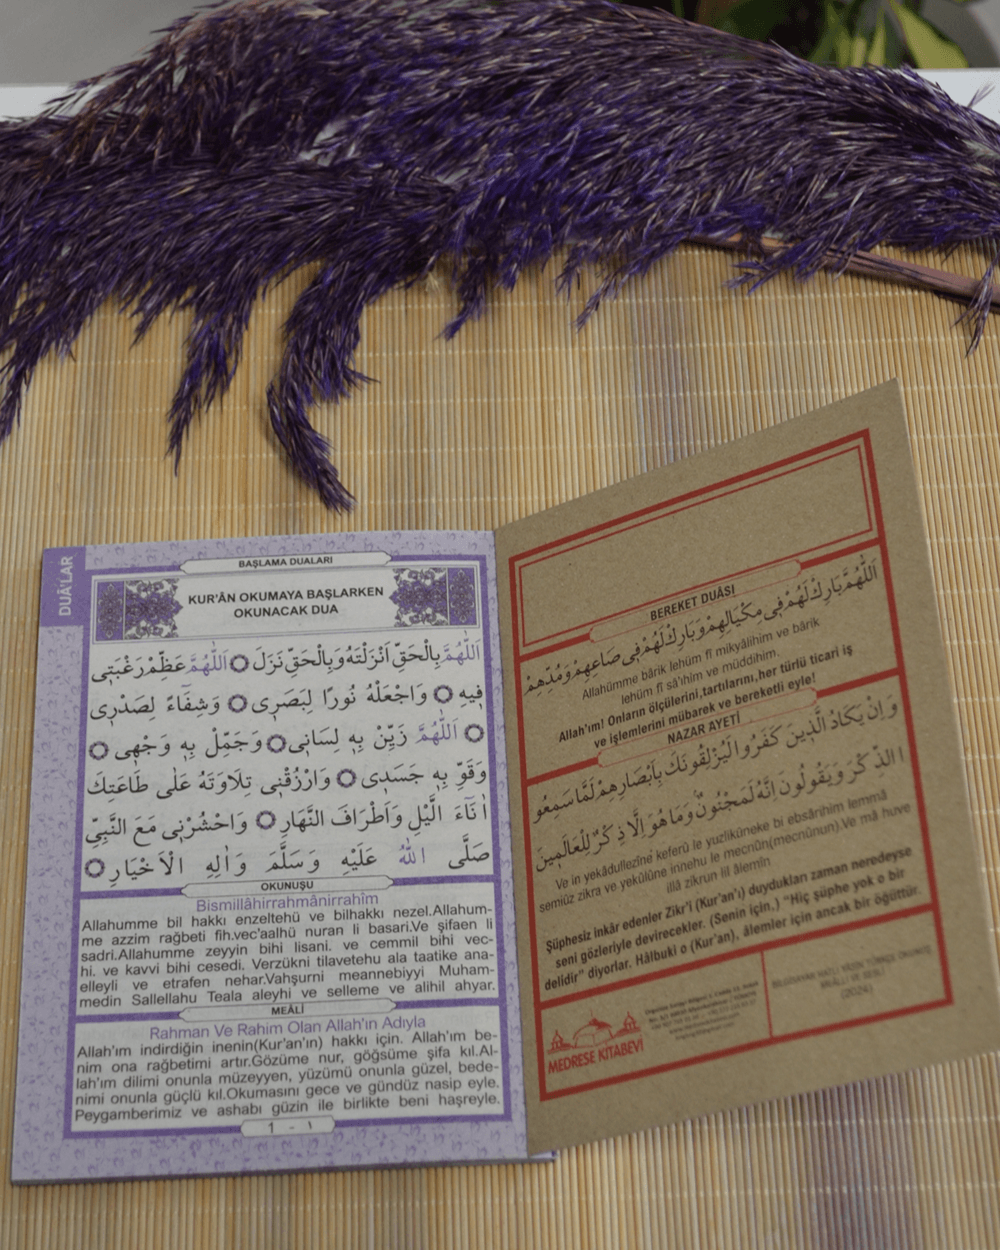 DUÂ'LAR
BAŞLAMA DUALARI
KUR'ÂN OKUMAYA BAŞLARKEN
OKUNACAK DUA
اَللّٰهُمَّ بِالْحَقِّ اَنْزَلْتَهُ وَبِالْحَقِّ نَزَلَ اَللّٰهُمَّ عَظِّمْ رَغْبَتِى
فِيهِ وَاجْعَلْهُ نُورًا لِبَصَرِى وَشِفَاءً لِصَدْرِى
اَللّٰهُمَّ زَيِّنْ بِهِ لِسَانِى وَجَمِّلْ بِهِ وَجْهِى
وَقَوِّ بِهِ جَسَدِى وَارْزُقْنِى تِلَاوَتَهُ عَلٰى طَاعَتِكَ
اٰنَاءَ الَّيْلِ وَاَطْرَافَ النَّهَارِ وَاحْشُرْنِى مَعَ النَّبِيِّ
صَلَّى اللّٰهُ عَلَيْهِ وَسَلَّمَ وَاٰلِهِ الْاَخْيَارِ
OKUNUŞU
Bismillâhirrahmânirrahîm
Allahumme bil hakkı enzeltehü ve bilhakkı nezel.Allahum-
me azzim rağbeti fih.vec'aalhü nuran li basari.Ve şifaen li
sadri.Allahumme zeyyin bihi lisani. ve cemmil bihi vec-
hi. ve kavvi bihi cesedi. Verzükni tilavetehu ala taatike ana-
elleyli ve etrafen nehar.Vahşurni meannebiyyi Muham-
medin Sallellahu Teala aleyhi ve selleme ve alihil ahyar.
MEÂLİ
Rahman Ve Rahim Olan Allah'ın Adıyla
Allah'ım indirdiğin inenin(Kur'an'ın) hakkı için. Allah'ım be-
nim ona rağbetimi artır.Gözüme nur, göğsüme şifa kıl.Al-
lah'ım dilimi onunla müzeyyen, yüzümü onunla güzel, bede-
nimi onunla güçlü kıl.Okumasını gece ve gündüz nasip eyle.
Peygamberimiz ve ashabı güzin ile birlikte beni haşreyle.
1 - ١
BEREKET DUÂSI
اَللّٰهُمَّ بَارِكْ لَهُمْ فِى مِكْيَالِهِمْ وَبَارِكْ لَهُمْ فِى صَاعِهِمْ وَمُدِّهِمْ
Allahümme bârik lehüm fî mikyâlihim ve bârik
lehüm fî sâ'ihim ve müddihim.
Allah'ım! Onların ölçülerini,tartılarını,her türlü ticari iş
ve işlemlerini mübarek ve bereketli eyle!
NAZAR AYETİ
وَاِنْ يَكَادُ الَّذِينَ كَفَرُوا لَيُزْلِقُونَكَ بِاَبْصَارِهِمْ لَمَّا سَمِعُو
ا الذِّكْرَ وَيَقُولُونَ اِنَّهُ لَمَجْنُونٌ وَمَا هُوَ اِلَّا ذِكْرٌ لِلْعَالَمِينَ
Ve in yekâdullezîne keferû le yuzlikûneke bi ebsârihim lemmâ
semiûz zikra ve yekûlûne innehu le mecnûn(mecnûnun).Ve mâ huve
illâ zikrun lil âlemîn
Şüphesiz inkâr edenler Zikr'i (Kur'an'ı) duydukları zaman neredeyse
seni gözleriyle devirecekler. (Senin için,) "Hiç şüphe yok o bir
delidir" diyorlar. Hâlbuki o (Kur'an), âlemler için ancak bir öğüttür.
MEDRESE KİTABEVİ
BİLGİSAYAR HATLI YÂSİN TÜRKÇE OKUNUŞ
MEÂLLİ VE SESLİ
(2024)